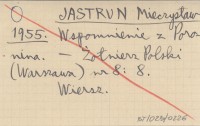 O JASTRUN Mieczysław
1955. Wspomnienie z Poro
nina. – Żołnierz Polski
(Warszawa) nr 8: 8.
Wiersz.